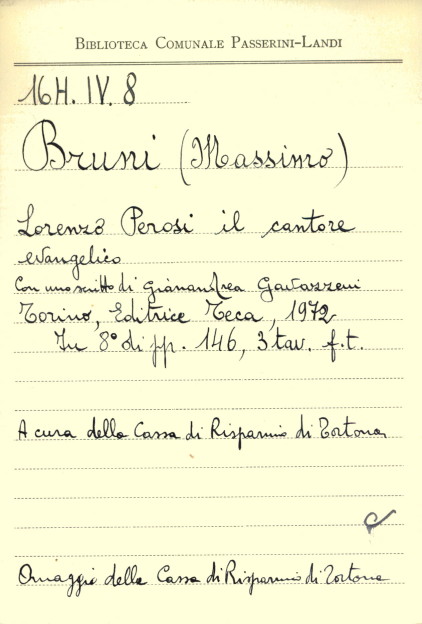 BIBLIOTECA COMUNALE PASSERINI-LANDI
16H. IV. 8
Bruni (Massimo)
Lorenzo Perosi il cantore
evangelico
Con uno scritto di Gianandrea Gavazzeni
Torino, Editrice Teca, 1972
In 8° di pp. 146, 3 tav. f.t.
A cura della Cassa di Risparmio di Tortona
Omaggio della Cassa di Risparmio di Tortona